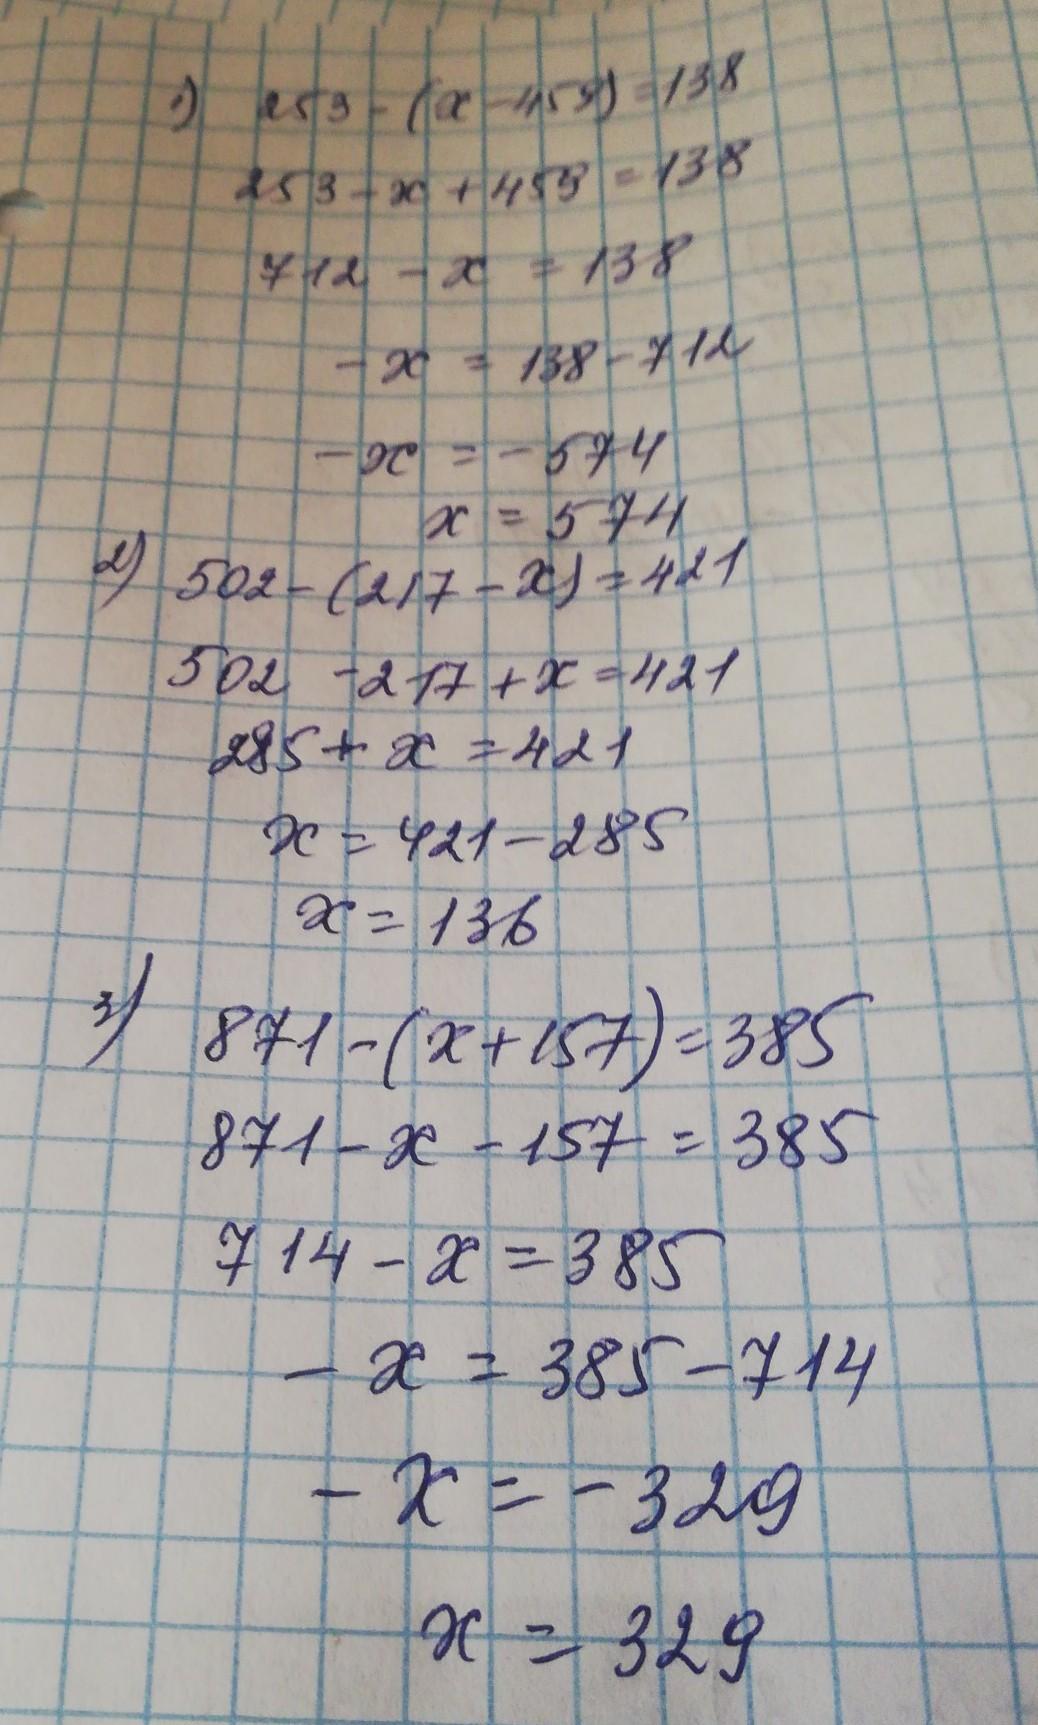 1) 253 - (x - 459) = 138
253 - x + 459 = 138
712 - x = 138
- x = 138 - 712
- x = - 574
x = 574
2) 502 - (217 - x) = 421
502 - 217 + x = 421
285 + x = 421
x = 421 - 285
x = 136
3) 871 - (x + 157) = 385
871 - x - 157 = 385
714 - x = 385
- x = 385 - 714
- x = - 329
x = 329